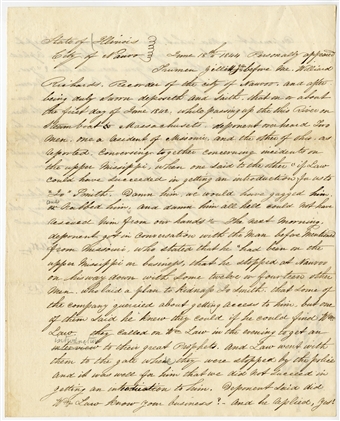 State of Illinois
City of Nauvoo
June 15th 1844 Personally appeared
Truemen Gillett Jr before me Willard
Richards, Recorder of the city of Nauvoo, and after
being duly Sworn deposeth and Saith, that on or about
the first day of June inst, while passing up the this River on
Steam boat Massachusetts, deponent overheard Two
men, one a resident of Missouri, and the other of Ohio, as
reported, Conversing together Concerning incidents on
the upper Mississippi, when one said to the other "if Law
could have succeeded in getting an introduction for us to
"Jo" Smith. Damn him, we would have gagged him,
& nabbed him, and damn him all hell could not have
rescued him from our hands" The next morning
deponent got in Conversation with the Man before Mentioned
from Missouri, who stated that he had been on the
upper Mississippi on business, that he stopped at Nauvoo
on his way down with Some twelve or fourteen other
Men, who laid a plan to Kidnap Jo Smith, that Some of
the company queried about getting access to him, but one
of them Said he knew they could if he could find Wm
Law, they called on Wm Law in the evening to get an
interview to their great Prophet, and Law went with
them to the gate where they were stopped by the police
and it was well for him that we did not succeed in
getting an introduction to him, Deponent Said did
Wm Law Know your business? And he Replied, Yes